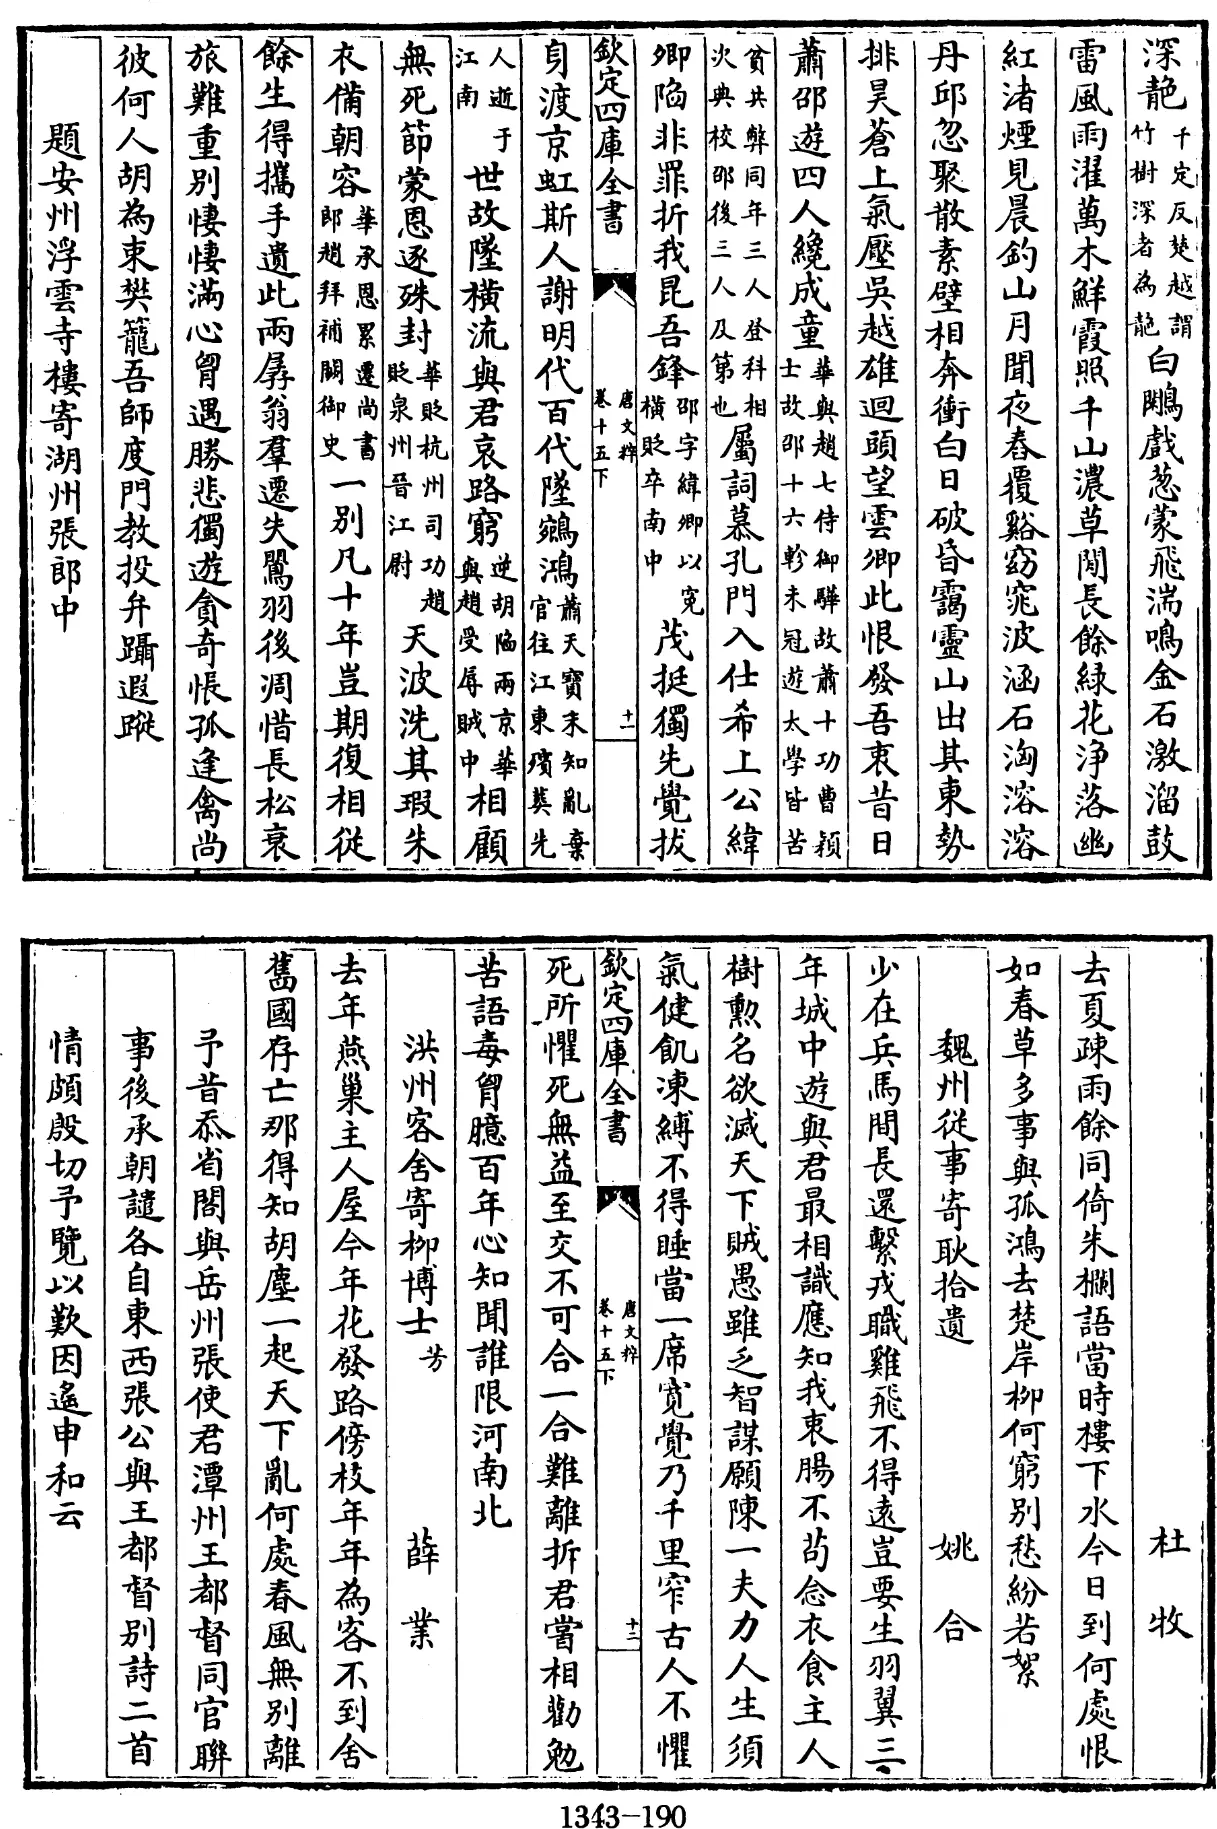 深靘千定反楚越謂竹樹深者為靘白鷴戲葱蒙飛湍鳴金石激溜鼓
雷風雨濯萬木鮮霞照千山濃草閒長餘緑花浄落幽
紅渚煙見晨釣山月聞夜舂覆谿窈窕波涵石洶溶溶
丹邱忽聚散素壁相奔衝白日破昏靄靈山出其東勢
排昊蒼上氣壓吳越雄迴頭望雲卿此恨發吾衷昔日
蕭邵遊四人纔成童華與趙七侍御驊故蕭十功曹穎士故邵十六軫未冠遊太學皆苦
貧共弊同年三人登科相次典校邵後三人及第也屬詞慕孔門入仕希上公緯
卿陷非罪折我昆吾鋒邵字緯卿以寃橫貶卒南中茂挺獨先覺拔
欽定四庫全書
唐文粹
卷十五下
十一
身渡京虹斯人謝明代百代墜鵷鴻蕭天寶末知亂棄官往江東殯葬先
人逝于江南世故墜橫流與君哀路窮逆胡陷兩京華與趙受辱賊中相顧
無死節蒙恩逐殊封華貶杭州司功趙貶泉州晉江尉天波洗其瑕朱
衣備朝容華承恩累遷尚書郎趙拜補闕御史一別凡十年豈期復相從
餘生得攜手遺此兩孱翁羣遷失鸎羽後凋惜長松衰
旅難重別悽悽滿心胷遇勝悲獨遊貪奇悵孤逢禽尚
彼何人胡為束樊籠吾師度門教投弁躡遐蹤
題安州浮雲寺樓寄湖州張郎中
杜牧
去夏疎雨餘同倚朱欄語當時樓下水今日到何處恨
如春草多事與孤鴻去楚岸柳何窮別愁紛若絮
魏州從事寄耿拾遺　姚合
少在兵馬間長還繫戎職雞飛不得逺豈要生羽翼三
年城中遊與君最相識應知我衷腸不茍念衣食主人
樹勲名欲滅天下賊愚雖乏智謀願陳一夫力人生須
氣健飢凍縛不得睡當一席寛覺乃千里窄古人不懼
欽定四庫全書
唐文粹
卷十五下
十二
死所懼死無益至交不可合一合難離拆君當相勸勉
苦語毒胷臆百年心知聞誰限河南北
洪州客舍寄柳博士芳　薛業
去年燕巢主人屋今年花發路傍枝年年為客不到舍
舊國存亡那得知胡塵一起天下亂何處春風無別離
予昔忝省閣與岳州張使君潭州王都督同官聯
事後承朝譴各自東西張公與王都督別詩二首
情頗殷切予覽以歎因遙申和云
1343-190